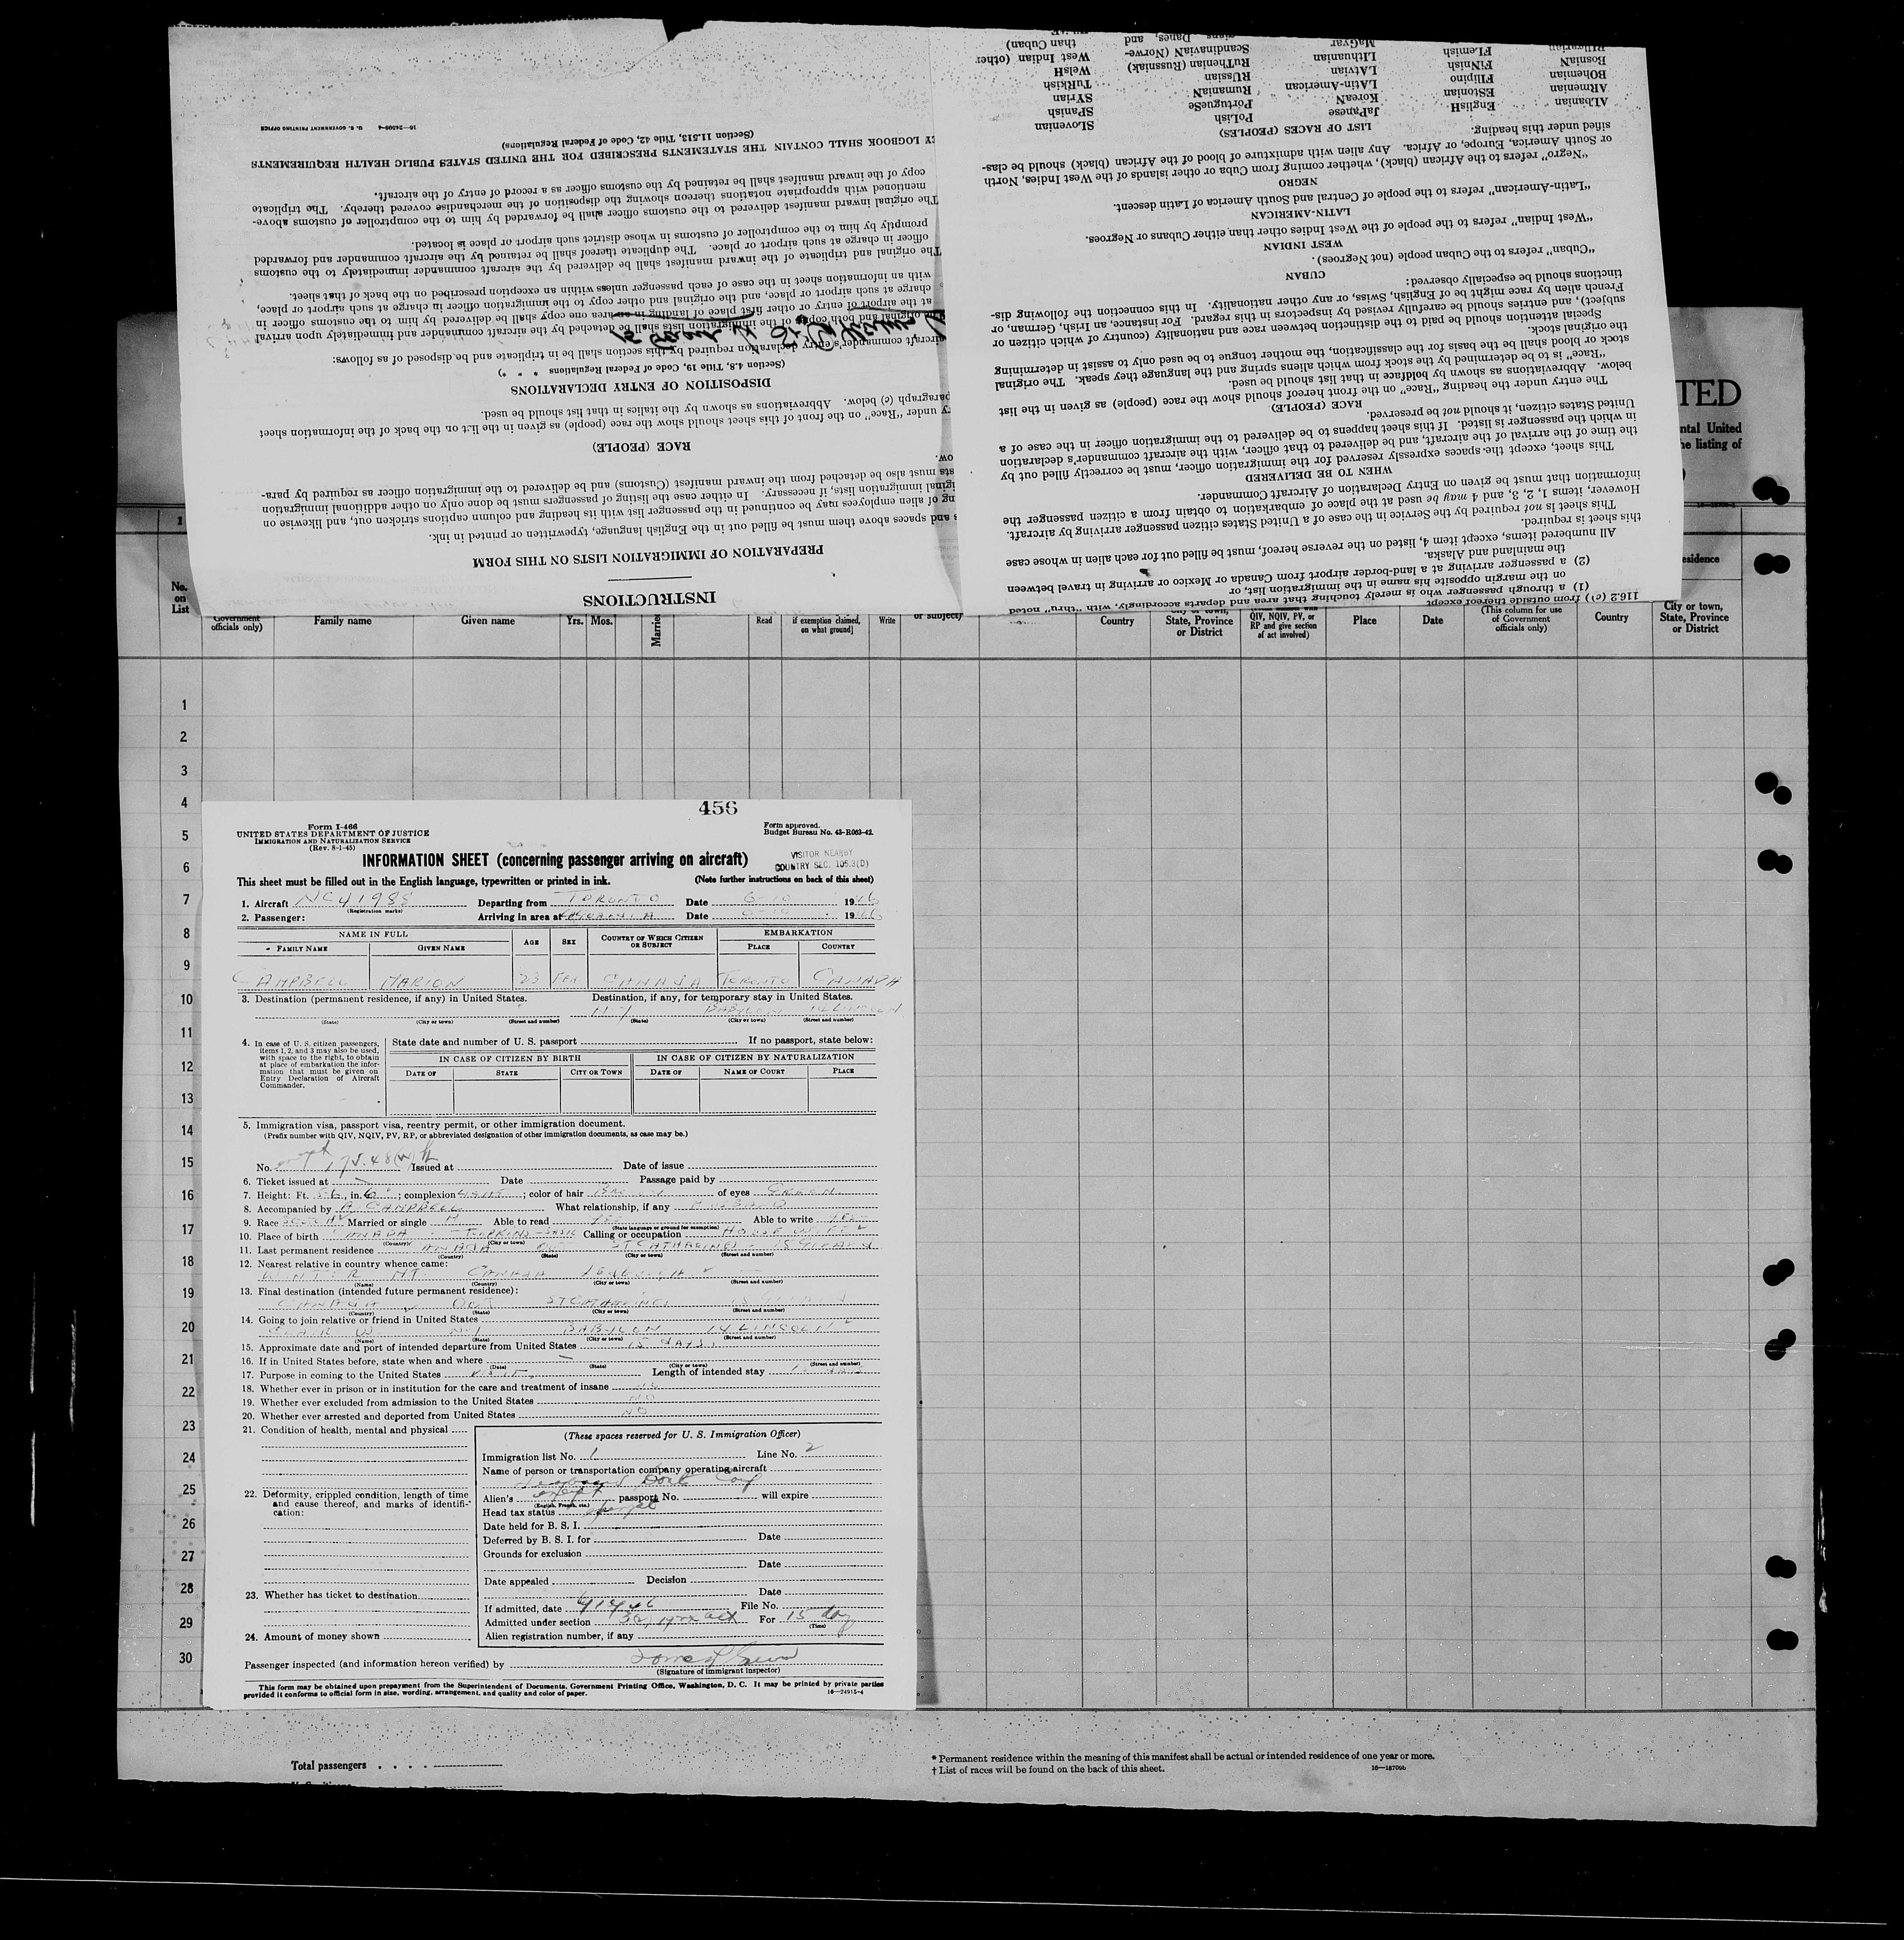 INSTRUCTIONS
PREPARATION OF IMMIGRATION LISTS ON THIS FORM
and spaces above them must be filled out in the English language, typewritten or printed in ink.
of alien employees may be continued in the passenger list with its heading and column captions stricken out, and likewise on
original immigration lists, if necessary. In either case the listing of passengers must be done only on other additional immigration
must also be detached from the inward manifest (Customs) and be delivered to the immigration officer as required by para-
RACE (PEOPLE)
under "Race" on the front of this sheet should show the race (people) as given in the list on the back of the information sheet
paragraph (c) below. Abbreviations as shown by the italics in that list should be used.
DISPOSITION OF ENTRY DECLARATIONS
(Section 4.8, Title 19, Code of Federal Regulations * * *)
aircraft commander's entry declaration required by this section shall be in triplicate and be disposed of as follows:
original and both copies of the immigration lists shall be detached by the aircraft commander and immediately upon arrival
at the airport of entry or other first place of landing in an area one copy shall be delivered by him to the customs officer in
charge at such airport or place, and the original and other copy to the immigration officer in charge at such airport or place,
with an information sheet in the case of each passenger unless within an exception prescribed on the back of that sheet.
The original and triplicate of the inward manifest shall be delivered by the aircraft commander immediately to the customs
officer in charge at such airport or place. The duplicate thereof shall be retained by the aircraft commander and forwarded
promptly by him to the comptroller of customs in whose district such airport or place is located.
The original inward manifest delivered to the customs officer shall be forwarded by him to the comptroller of customs above-
mentioned with appropriate notations thereon showing the disposition of the merchandise covered thereby. The triplicate
copy of the inward manifest shall be retained by the customs officer as a record of entry of the aircraft.
LOGBOOK SHALL CONTAIN THE STATEMENTS PRESCRIBED FOR THE UNITED STATES PUBLIC HEALTH REQUIREMENTS
(Section 11.513, Title 42, Code of Federal Regulations)
16—24598-4 U. S. GOVERNMENT PRINTING OFFICE
116.2 (c) from outside thereof except
(1) a through passenger who is merely touching that area and departs accordingly, with "thru" noted
on the margin opposite his name in the immigration list, or
(2) a passenger arriving at a land-border airport from Canada or Mexico or arriving in travel between
the mainland and Alaska.
All numbered items, except item 4, listed on the reverse hereof, must be filled out for each alien in whose case
this sheet is required.
This sheet is not required by the Service in the case of a United States citizen passenger arriving by aircraft.
However, items 1, 2, 3, and 4 may be used at the place of embarkation to obtain from a citizen passenger the
information that must be given on Entry Declaration of Aircraft Commander.
WHEN TO BE DELIVERED
This sheet, except the spaces expressly reserved for the immigration officer, must be correctly filled out by
the time of the arrival of the aircraft, and be delivered to that officer, with the aircraft commander's declaration
in which the passenger is listed. If this sheet happens to be delivered to the immigration officer in the case of a
United States citizen, it should not be preserved.
RACE (PEOPLE)
The entry under the heading "Race" on the front hereof should show the race (people) as given in the list
below. Abbreviations as shown by boldface in that list should be used.
"Race" is to be determined by the stock from which aliens spring and the language they speak. The original
stock or blood shall be the basis for the classification, the mother tongue to be used only to assist in determining
the original stock.
Special attention should be paid to the distinction between race and nationality (country of which citizen or
subject), and entries should be carefully revised by inspectors in this regard. For instance, an Irish, German, or
French alien by race might be of English, Swiss, or any other nationality. In this connection the following dis-
tinctions should be especially observed:
CUBAN
"Cuban" refers to the Cuban people (not Negroes).
WEST INDIAN
"West Indian" refers to the people of the West Indies other than either Cubans or Negroes.
LATIN-AMERICAN
"Latin-American" refers to the people of Central and South America of Latin descent.
NEGRO
"Negro" refers to the African (black), whether coming from Cuba or other islands of the West Indies, North
or South America, Europe, or Africa. Any alien with admixture of blood of the African (black) should be clas-
sified under this heading.
LIST OF RACES (PEOPLES)
ALbanian EnglisH JaPanese PoLish SLovenian
ARmenian EStonian KoreaN PortugueSe SPanish
BOhemian FIlipino LAtin-American RumaniaN SYrian
BosniaN FiNnish LAtvian RUssian TuRkish
FLemish LIthuanian RuThenian (Russniak) WelsH
MaGyar ScandinaviaN (Norwe- West Indian (other
Danes, and than Cuban)
TED
ntal United
listing of
No.
on
List
officials only)
Family name
Given name
Yrs. Mos.
Read
if exemption claimed,
on what ground]
Write
or subject)
Country
State, Province
or District
QIV, NQIV, PV, or
RP and give section
of act involved)
Place
Date
(This column for use
of Government
officials only)
Country
City or town,
State, Province
or District
1
2
3
4
5
6
7
8
9
10
11
12
13
14
15
16
17
18
19
20
21
22
23
24
25
26
27
28
29
30
456
Form I-466
UNITED STATES DEPARTMENT OF JUSTICE
IMMIGRATION AND NATURALIZATION SERVICE
(Rev. 8-1-45)
Form approved.
Budget Bureau No. 43-R063-42.
INFORMATION SHEET (concerning passenger arriving on aircraft)
VISITOR NEARBY
COUNTRY SEC. 105.3(D)
This sheet must be filled out in the English language, typewritten or printed in ink. (Note further instructions on back of this sheet)
1. Aircraft NC41988 Departing from TORONTO Date 6-10 1946
(Registration marks)
2. Passenger: Arriving in area at Date 1946
NAME IN FULL AGE SEX COUNTRY OF WHICH CITIZEN OR SUBJECT EMBARKATION
FAMILY NAME GIVEN NAME PLACE COUNTRY
CAMPBELL MARION 23 FEM CANADA TORONTO CANADA
3. Destination (permanent residence, if any) in United States. Destination, if any, for temporary stay in United States.
N.Y BABYLON
(State) (City or town) (Street and number) (State) (City or town) (Street and number)
4. In case of U. S. citizen passengers,
items 1, 2, and 3 may also be used,
with space to the right, to obtain
at place of embarkation the infor-
mation that must be given on
Entry Declaration of Aircraft
Commander.
State date and number of U. S. passport If no passport, state below:
IN CASE OF CITIZEN BY BIRTH IN CASE OF CITIZEN BY NATURALIZATION
DATE OF STATE CITY OR TOWN DATE OF NAME OF COURT PLACE
5. Immigration visa, passport visa, reentry permit, or other immigration document.
(Prefix number with QIV, NQIV, PV, RP, or abbreviated designation of other immigration documents, as case may be.)
No. 175.48 Issued at Date of issue
6. Ticket issued at Date Passage paid by
7. Height: Ft. , in. 6 ; complexion ; color of hair of eyes GREEN
8. Accompanied by A. CAMPBELL What relationship, if any HUSBAND
9. Race SCOTCH Married or single M Able to read YES Able to write YES
(State language or ground for exemption)
10. Place of birth CANADA Calling or occupation HOUSE WIFE
(Country) (City or town)
11. Last permanent residence CANADA ST CATHARINES
(Country) (State) (City or town) (Street and number)
12. Nearest relative in country whence came:
CANADA
(Name) (Country) (City or town) (Street and number)
13. Final destination (intended future permanent residence):
CANADA ONT ST CATHARINES
(Country) (State) (City or town) (Street and number)
14. Going to join relative or friend in United States
N.Y BABYLON 14 LINCOLN
(Name) (State) (City or town) (Street and number)
15. Approximate date and port of intended departure from United States 15 DAYS
16. If in United States before, state when and where
(Date) (State) (City or town) (Street and number)
17. Purpose in coming to the United States VISIT Length of intended stay 15 DAYS
18. Whether ever in prison or in institution for the care and treatment of insane NO
19. Whether ever excluded from admission to the United States NO
20. Whether ever arrested and deported from United States NO
21. Condition of health, mental and physical
22. Deformity, crippled condition, length of time
and cause thereof, and marks of identifi-
cation:
23. Whether has ticket to destination
24. Amount of money shown
(These spaces reserved for U. S. Immigration Officer)
Immigration list No. 1 Line No. 2
Name of person or transportation company operating aircraft
Alien's exempt passport No. will expire
(English, French, etc.)
Head tax status exempt
Date held for B. S. I.
Deferred by B. S. I. for Date
Grounds for exclusion
Date
Date appealed Decision
Date
If admitted, date File No.
Admitted under section For 15 day
(Time)
Alien registration number, if any
Passenger inspected (and information hereon verified) by
(Signature of immigrant inspector)
This form may be obtained upon prepayment from the Superintendent of Documents, Government Printing Office, Washington, D. C. It may be printed by private parties
provided it conforms to official form in size, wording, arrangement, and quality and color of paper. 16—24915-4
Total passengers
* Permanent residence within the meaning of this manifest shall be actual or intended residence of one year or more.
† List of races will be found on the back of this sheet. 16—18709b